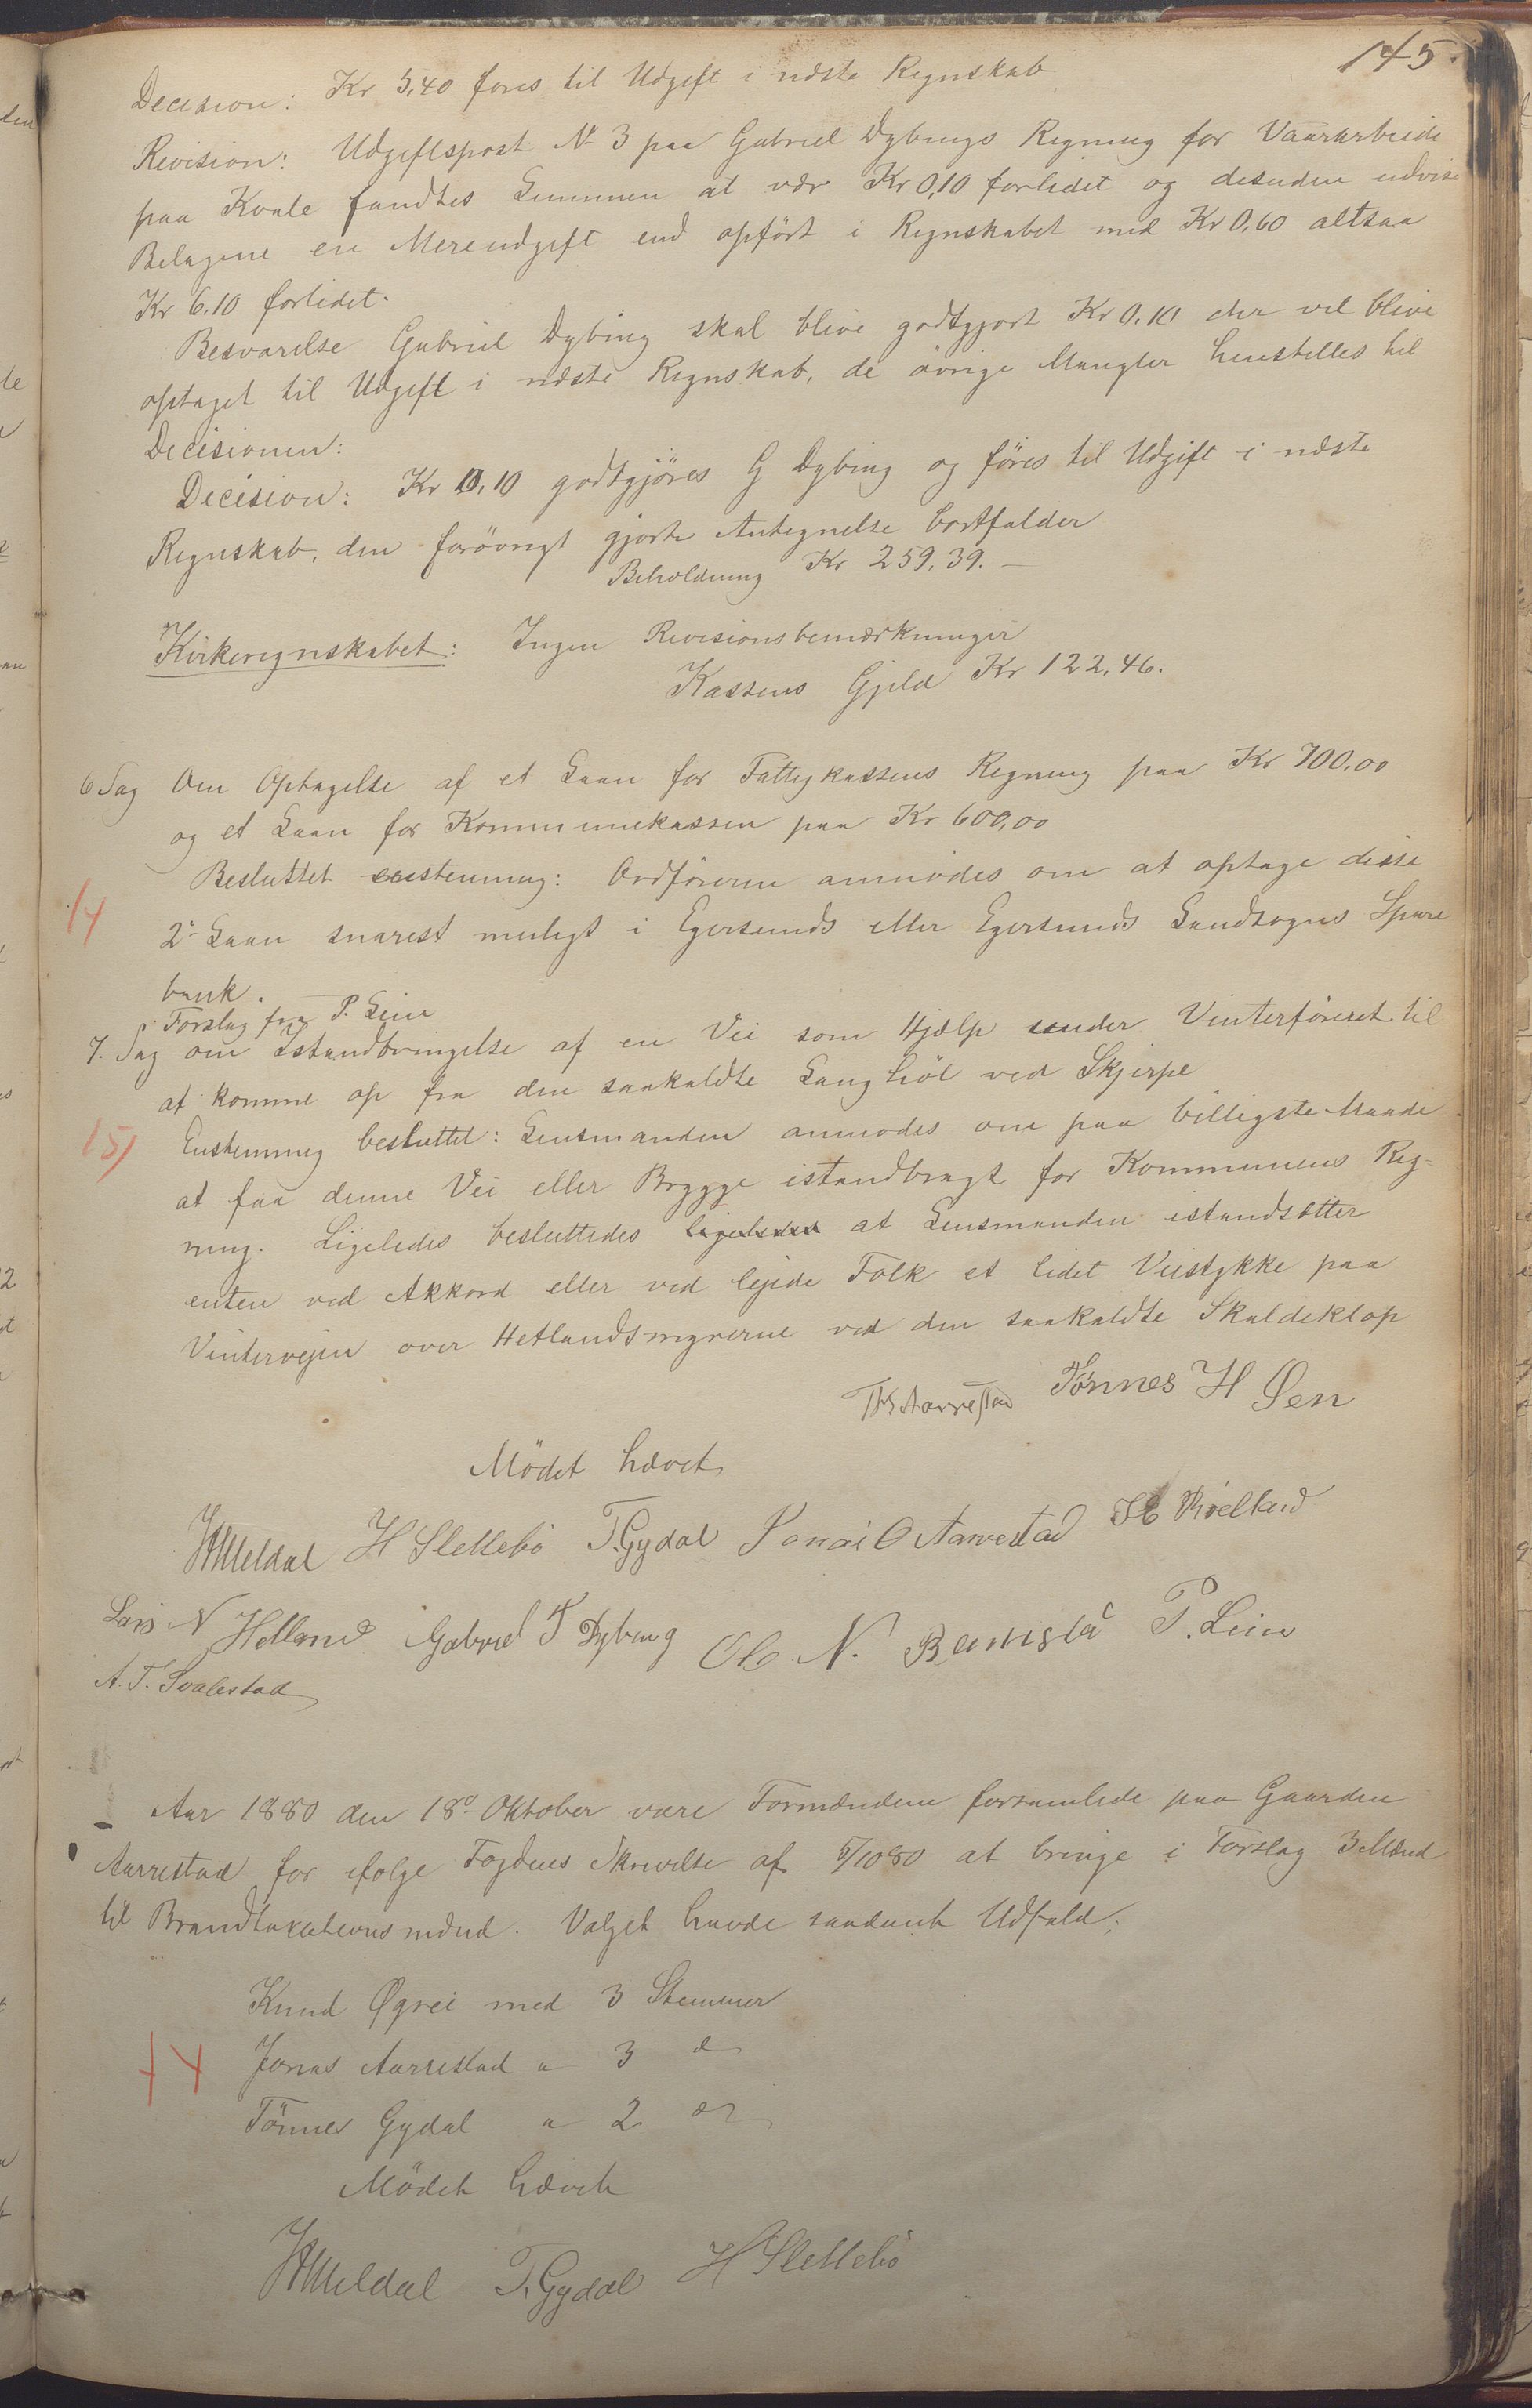 145.
Decision: Kr 5,40 føres til Udgift i næste Regnskab
Revision: Udgiftspost No 3 paa Gabriel Dybings Regning for Vaararbeide
paa Kvale fandtes Summen at vær Kr 0,10 forlidet og desuden udvise
Belagene en Mereudgift end opført i Regnskabet med Kr 0,60 altsaa
Kr 6.10 forlidet.
Besvarelse Gabriel Dybing skal blive godtgjort Kr 0,10 der vil blive
optaget til Udgift i næste Regnskab, de øvrige Mangler henstilles til
Decisionen:
Decision: Kr 0,10 godtgjöres G Dybing og föres til Udgift i næste
Regnskab, den forövrigt gjorte Antegnelse bortfalder
Beholdning Kr 259,39. —
Kirkeregnskabet: Ingen Revisionsbemærkninger
Kassens Gjeld Kr 122,46.
6 Sag Om Optagelse af et Laan for Fattigkassens Regning paa Kr 700,00
og et Laan for Kommunekassen paa Kr 600,00
Besluttet enstemmig: Ordföreren anmodes om at optage disse
14
2de Laan snarest muligt i Egersunds eller Egersunds Landsogns Spare
bank.
Forslag fra P. Lein
7. Sag om Istandbringelse af en Vei som Hjælp under Vinterföreret til
at komme op fra den saakaldte Langhöl ved Skjerpe
15/ Enstemmig besluttet: Lensmanden anmodes om paa billigste Maade
at faa denne Vei eller Brygge istandbragt for Kommunens Reg-
ning. Ligeledes besluttedes ligeledes at Lensmanden istandsætter
enten ved Akkord eller ved leiede Folk et lidet Veistykke paa
Vintervejen over Hetlandsmyrerne ved den saakaldte Skaldeklop
Aarrestad Tönnes H Øen
Mödet hævet
Meldal H Slettebö T. Gydal Jonas O Aarrestad
Lars N Helland Gabriel T Dybing Ole N. Ramslå P. Lein
A. T. Svalestad
Aar 1880 den 18de Oktober vare Formændene forsamlede paa Gaarden
Aarrestad for ifölge Fogdens Skrivelse af 5/10 80 at bringe i Forslag 3 Mænd
til Brandtaxationsmænd. Valget havde saadant Udfald:
Knud Øgrei med 3 Stemmer
Jonas Aarrestad " 3 do
Tönnes Gydal " 2 do
Mödet hævet
Meldal T. Gydal H Slettebö